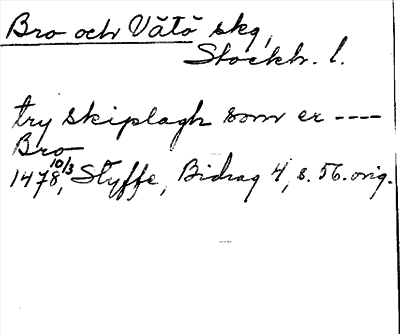 Bro och Vätö skg,
Stockh. l.
try skiplagh som er ----
Bro
1478 10/3, Styffe, Bidrag 4, s. 56. orig.